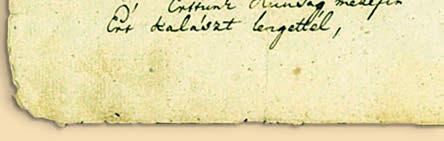 Értünk Kunság mezein
Ért kalászt lengettél,